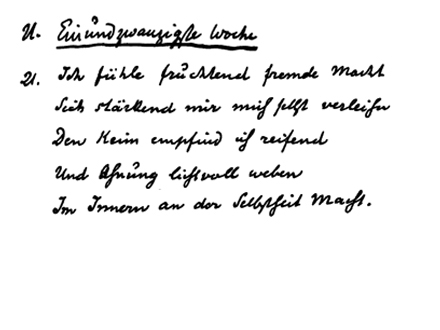 U. Einundzwanzigste Woche
21. Ich fühle fruchtend fremde Macht
Sich stärkend mir mich selbst verleihn
Den Keim empfind ich reifend
Und Ahnung lichtvoll weben
Im Innern an der Selbstheit Macht.